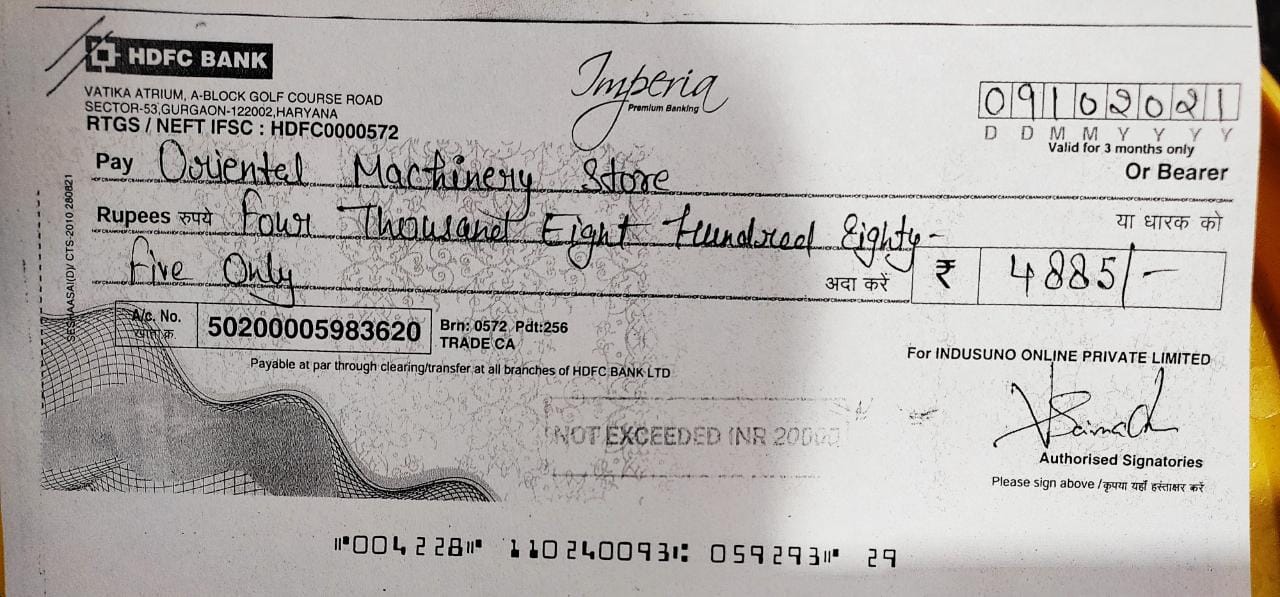 HDFC BANK
VATIKA ATRIUM, A-BLOCK GOLF COURSE ROAD
SECTOR-53,GURGAON-122002,HARYANA
RTGS / NEFT IFSC : HDFC0000572
Imperia
Premium Banking
09102021
D D M M Y Y Y Y
Valid for 3 months only
Pay Oriental Machinery Store
Or Bearer
Rupees रुपये Four Thousand Eight Hundred Eighty-
या धारक को
Five Only
अदा करें ₹ 4885/-
A/c. No.
खाता क्र.
50200005983620
Brn: 0572 Pdt:256
TRADE CA
Payable at par through clearing/transfer at all branches of HDFC BANK LTD
For INDUSUNO ONLINE PRIVATE LIMITED
NOT EXCEEDED INR
Authorised Signatories
Please sign above / कृपया यहाँ हस्ताक्षर करें
⑈004228⑈ 110240093⑆ 059293⑈ 29
CTS-2010